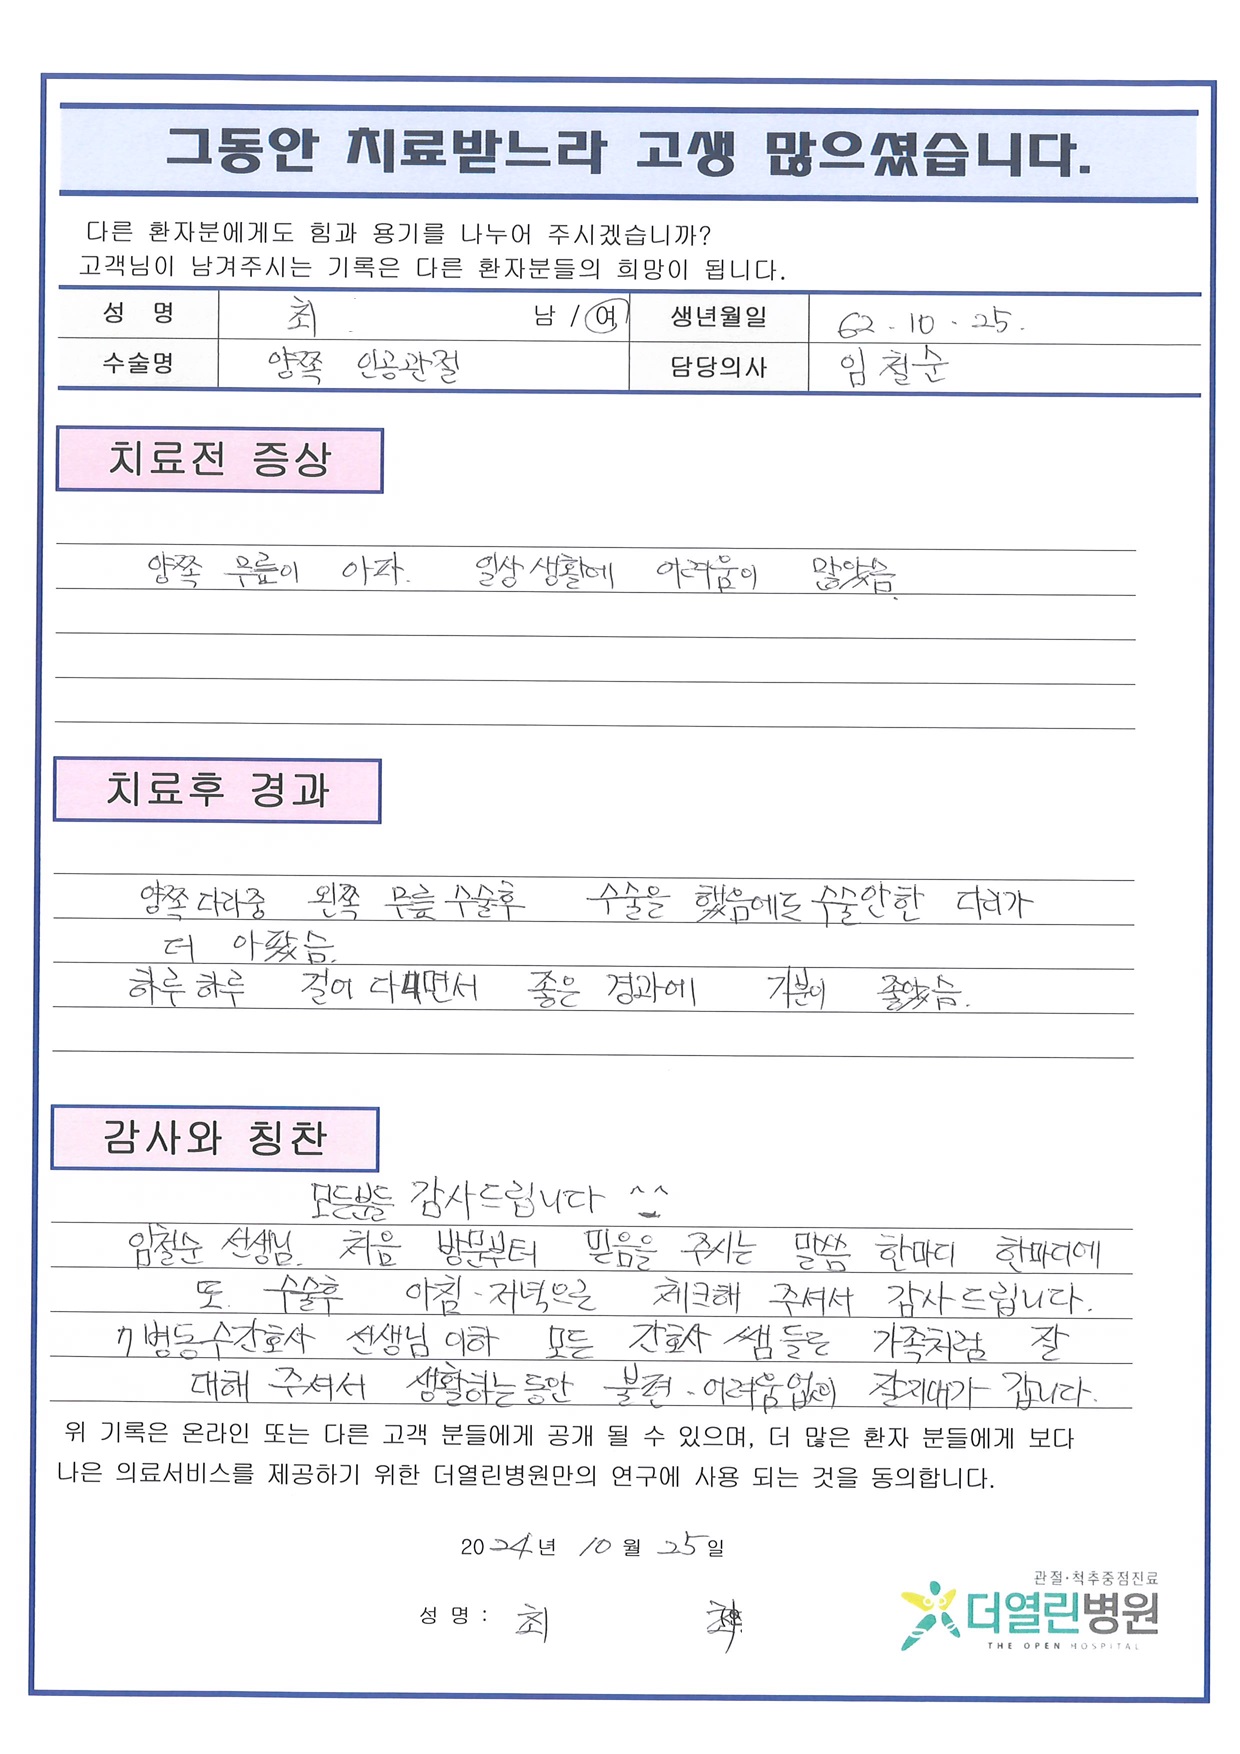 그동안 치료받느라 고생 많으셨습니다.
다른 환자분에게도 힘과 용기를 나누어 주시겠습니까?
고객님이 남겨주시는 기록은 다른 환자분들의 희망이 됩니다.
성 명 최 남 / 여 생년월일 62.10.25.
수술명 양쪽 인공관절 담당의사 임철순
치료전 증상
양쪽 무릎이 아파. 일상생활에 어려움이 많았슴.
치료후 경과
양쪽다리중 왼쪽 무릎 수술후 수술을 했음에도 수술안한 다리가
더 아팠슴.
하루하루 걸어 다니면서 좋은 경과에 기분이 좋았슴.
감사와 칭찬
모든분들 감사드립니다 ^^
임철순 선생님. 처음 방문부터 믿음을 주시는 말씀 한마디 한마디에
또. 수술후 아침·저녁으로 체크해 주셔서 감사드립니다.
7병동수간호사 선생님이하 모든 간호사 쌤들도 가족처럼 잘
대해 주셔서 생활하는동안 불편·어려움없이 잘지내가 갑니다.
위 기록은 온라인 또는 다른 고객 분들에게 공개 될 수 있으며, 더 많은 환자 분들에게 보다
나은 의료서비스를 제공하기 위한 더열린병원만의 연구에 사용 되는 것을 동의합니다.
2024년 10월 25일
성 명 : 최
관절·척추중점진료
더열린병원
THE OPEN HOSPITAL